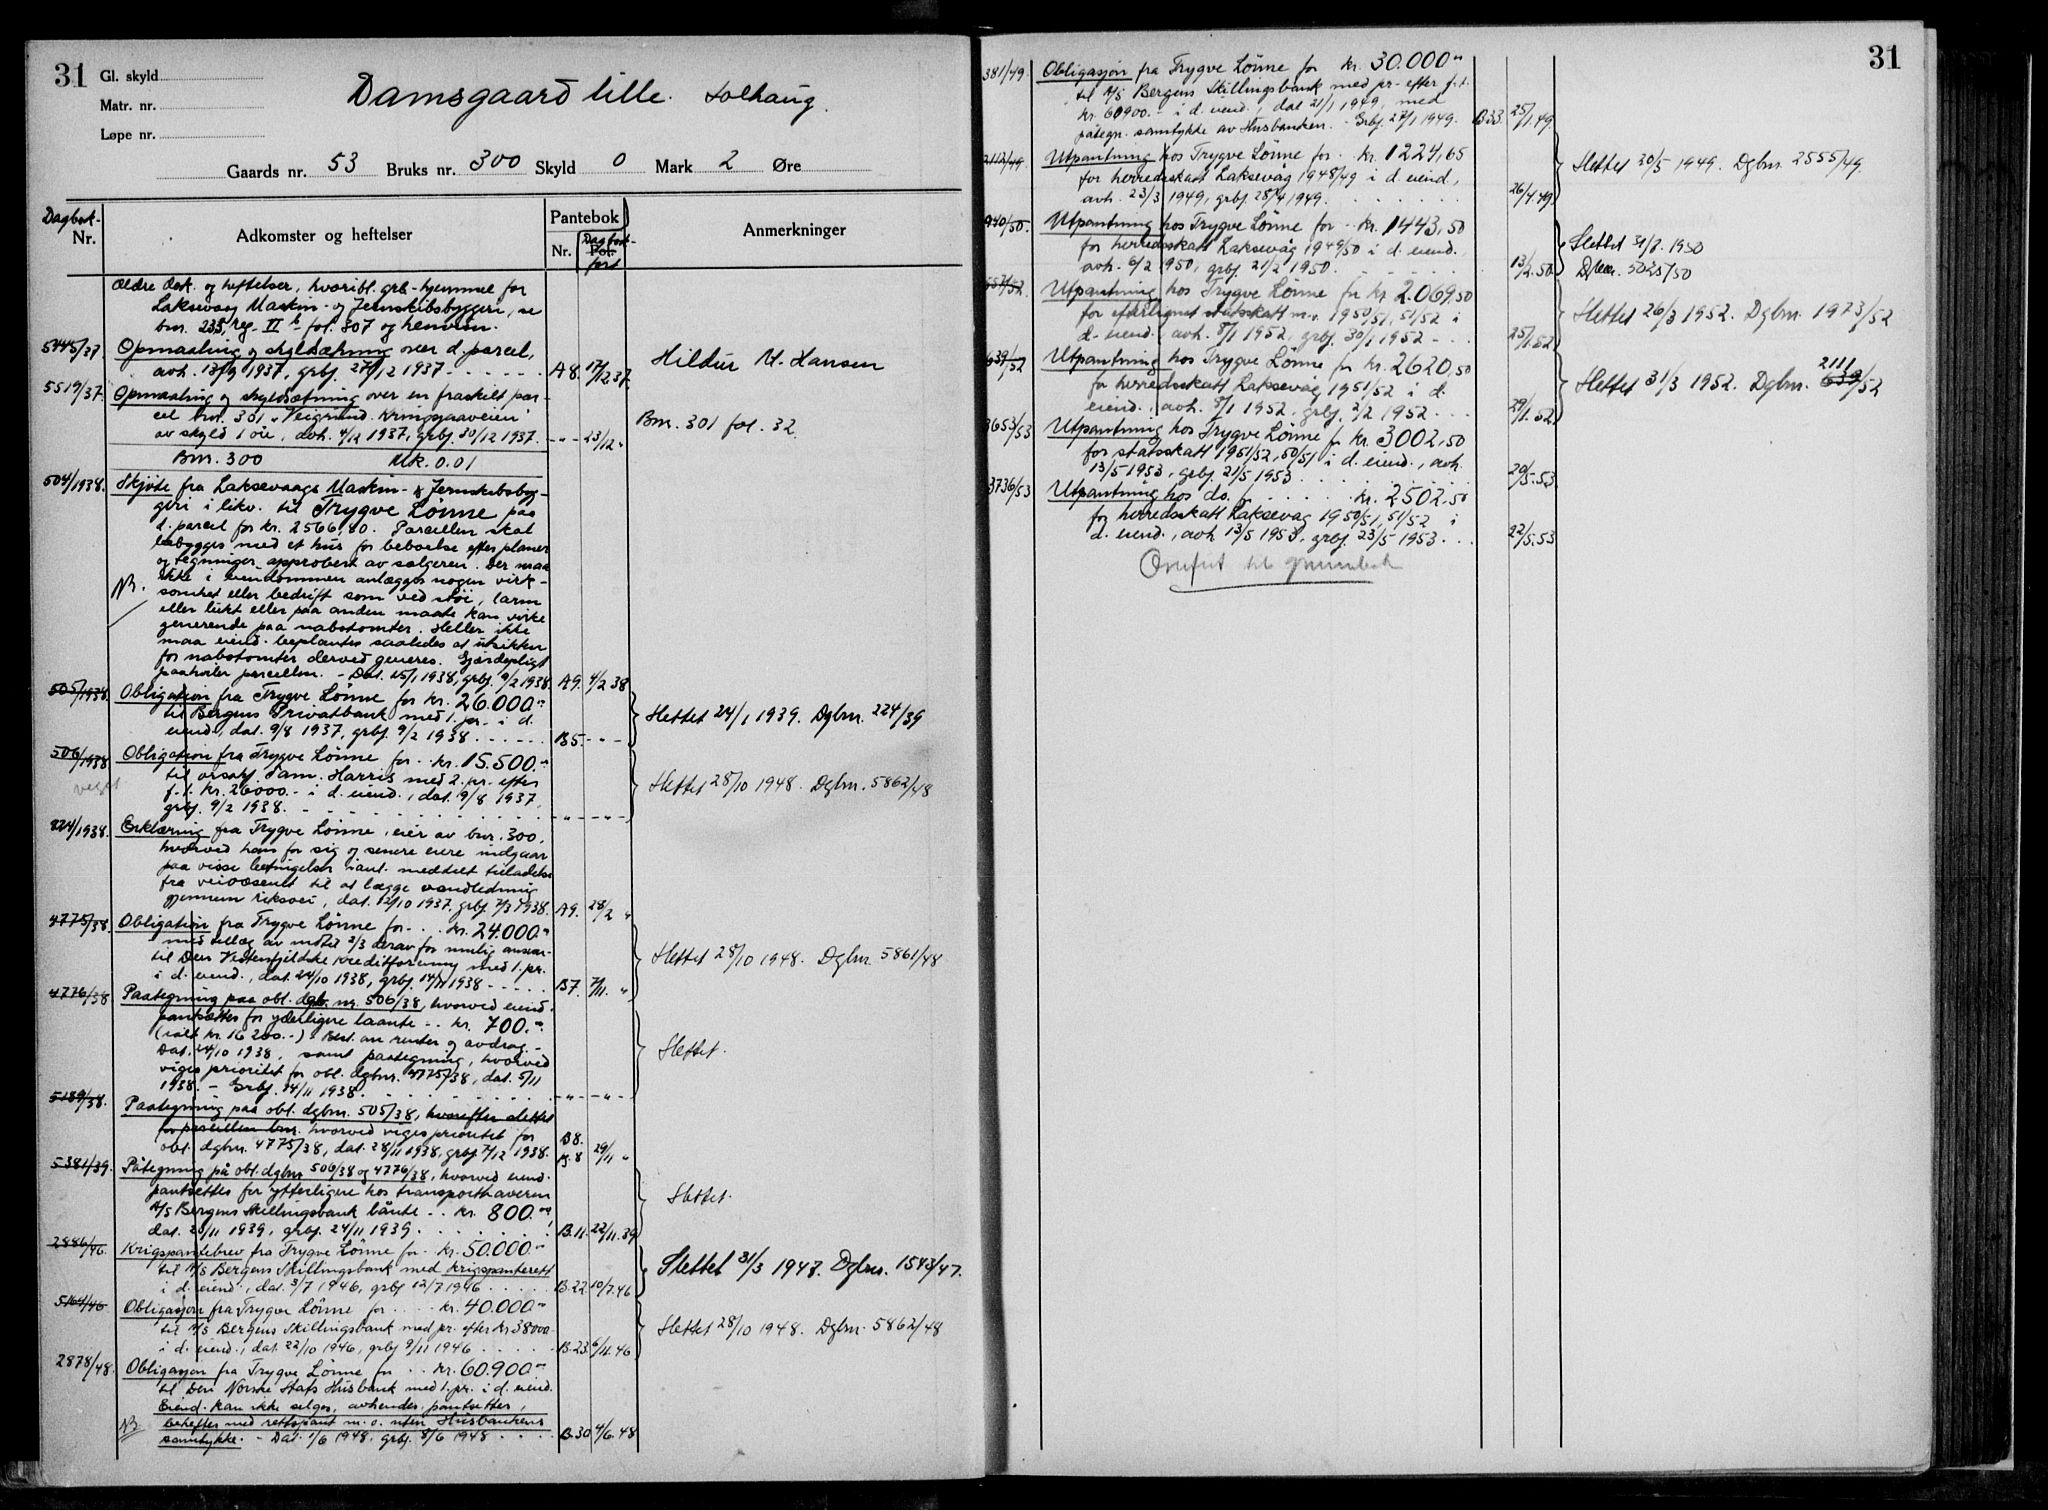 31
Gl. skyld
Matr. nr.
Løpe nr.
Damsgaard lille. Solhaug.
Gaards nr. 53 Bruks nr. 300 Skyld 0 Mark 2 Øre
Dagbok-
Nr.
Adkomster og heftelser
Pantebok
Nr.
Dagbok-
Fol.
ført
Anmerkninger
Ældre dok. og heftelser, hvoribl. grb-hjemmel for
Laksevaag Maskin- og Jernskibsbyggeri, se
bnr. 235, reg. II b fol. 307 og henvisn.
5445/37. Opmaaling og skyldsætning over d. parcel,
avh. 13/9 1937, grbj. 27/12 1937 A8. 17/12 37.
Hildur M. Hansen
5519/37. Opmaaling og skyldsætning over en fraskilt par-
cel bnr. 301 "Veigrund Kringsjaaveien"
av skyld 1 øre, avh. 4/12 1937, grbj. 30/12 1937. -"- 23/12 "
Bnr. 301 fol. 32.
Bnr. 300 Mk. 0.01
504/1938. Skjøte fra Laksevaags Maskin- & Jernskibsbyg-
geri i likv. til Trygve Lönne paa
d. parcel for kr. 2566,80. Parcellen skal
bebygges med et hus for beboelse efter planer
og tegninger approbert av sælgeren. Der maa
ikke i eiendommen anlægges nogen virk-
NB. somhet eller bedrift som ved støi, larm
eller lukt eller paa anden maate kan virke
generende paa nabotomter. Heller ikke
maa eiend. beplantes saaledes at utsikten
for nabotomter derved generes. Gjærdepligt
paahviler parcellen. - Dat. 15/1 1938, grbj. 9/2 1938. A9. 4/2 38
505/1938. Obligation fra Trygve Lönne for kr. 26.000.-
til Bergens Privatbank med 1. pr. i d.
eiend., dat. 9/8 1937, grbj. 9/2 1938 B5. -"-
Slettet 24/1 1939. Dgbnr. 224/39
506/1938 Obligation fra Trygve Lönne for kr. 15.500.-
til Harris med 2. pr. efter
f. t. kr. 26000.- i d. eiend., dat. 9/8 1937,
grbj. 9/2 1938. -"- -"-
Slettet 28/10 1948. Dgbnr. 5862/48
824/1938. Erklæring fra Trygve Lönne, eier av bnr. 300,
hvorved han for sig og senere eiere indgaar
paa visse betingelser i ant. meddelt tilladelse
fra veivæsenet til at lægge vandledning
gjennem riksvei, dat. 12/10 1937, grbj. 7/3 1938. A9. 28/2 "
4775/38. Obligation fra Trygve Lönne for kr. 24.000.-
med tillæg av indtil 2/3 derav for mulig ansvar
til Den Vestenfjeldske Kreditforening med 1. pr.
i d. eiend., dat. 24/10 1938, grbj. 14/11 1938 B7. 7/11. "
Slettet 28/10 1948. Dgbnr. 5861/48
4776/38 Paategning paa obl. dgb. nr. 506/38, hvorved eiend.
pantsættes for yderligere laante kr. 700.-
(ialt kr. 16200.-) Best. om renter og avdrag.-
Dat. 24/10 1938, samt paategning, hvorved
viges prioritet for obl. dgbnr. 4775/38, dat. 5/11
1938. - Grbj. 14/11 1938. -"- -"-
Slettet.
5189/38. Paategning paa obl. dgbnr. 505/38, hvorefter slettet
for parcellen bnr. hvorved viges prioritet for
obl. dgbnr. 4775/38, dat. 28/11 1938, grbj. 7/12 1938. B8. 29/11 "
5381/39. Påtegning på obl. dgbnr. 506/38 og 4776/38, hvorved eiend.
pantsettes for ytterligere hos transporthaveren
A/S Bergens Skillingsbank lånte kr. 800.-
dat. 20/11 1939, grbj. 24/11 1939. B.11. 22/11. 39
Slettet.
2886/46. Krigspantebrev fra Trygve Lönne for kr. 50.000.-
til A/S Bergens Skillingsbank med krigspanterett
i d. eiend., dat. 3/7 1946, grbj. 12/7 1946 B.22. 10/7. 46
Slettet 31/3 1947. Dgbnr. 1543/47.
5164/46 Obligasjon fra Trygve Lönne for kr. 40.000.-
til A/S Bergens Skillingsbank med pr. efter kr. 38000.-
i d. eiend., dat. 22/10 1946, grbj. 9/11 1946 B.23. 6/11. 46
Slettet 28/10 1948. Dgbnr. 5862/48
2878/48. Obligasjon fra Trygve Lönne for kr. 60.900.-
til Den Norske Stats Husbank med 1. pr. i d. eiend.
Eiend. kan ikke selges, avhendes, pantsettes,
NB. beheftes med rettspant m. o. uten Husbankens
samtykke. - Dat. 1/6 1948, grbj. 8/6 1948 B.30 4/6. 48
31
381/49. Obligasjon fra Trygve Lönne for kr. 30.000.-
til A/S Bergens Skillingsbank med pr. efter f. t.
kr. 60900.- i d. eiend., dat. 21/1 1949, med
påtegn. samtykke av Husbanken. - Grbj. 27/1 1949. B33. 25/1. 49.
2112/49. Utpantning hos Trygve Lönne for kr. 1224,65
for herredsskatt Laksevåg 1948/49 i d. eiend.,
avh. 23/3 1949, grbj. 28/4 1949. 26/4.49
Slettet 30/5 1949. Dgbnr. 2555/49.
940/50. Utpantning hos Trygve Lönne for kr. 1443,50
for herredsskatt Laksevåg 1949/50 i d. eiend.
avh. 6/2 1950, grbj. 21/2 1950. 13/2.50
Slettet 31/8. 1950
Dgbnr. 5025/50
557/52. Utpantning hos Trygve Lönne for kr. 2.069,50
for efterlignet statsskatt m.v. 1950/51, 51/52 i
d. eiend. avh. 8/1 1952, grbj. 30/1 1952 25/1.52
Slettet 26/3 1952. Dgbnr. 1973/52
639/52 Utpantning hos Trygve Lönne for kr. 2620,50
for herredsskatt Laksevåg 1951/52 i d.
eiend., avh. 8/1 1952, grbj. 2/2 1952 29/1.52
Slettet 31/3 1952. Dgbnr. 639 2111/52
3653/53 Utpantning hos Trygve Lönne for kr. 3002,50
for statsskatt 1951/52, 50/51 i d. eiend., avh.
13/5 1953, grbj. 21/5 1953 20/5.53
3736/53 Utpantning hos do. kr. 2502,50
for herredsskatt Laksevåg 1950/51, 51/52 i
d. eiend., avh. 13/5 1953, grbj. 23/5 1953 22/5.53
Overført til grunnbok